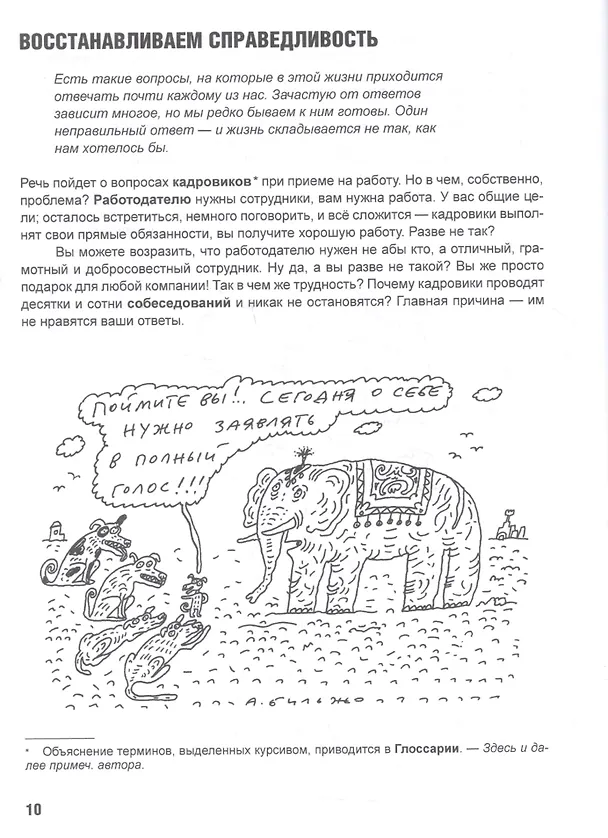 ВОССТАНАВЛИВАЕМ СПРАВЕДЛИВОСТЬ
Есть такие вопросы, на которые в этой жизни приходится
отвечать почти каждому из нас. Зачастую от ответов
зависит многое, но мы редко бываем к ним готовы. Один
неправильный ответ — и жизнь складывается не так, как
нам хотелось бы.
Речь пойдет о вопросах кадровиков* при приеме на работу. Но в чем, собственно,
проблема? Работодателю нужны сотрудники, вам нужна работа. У вас общие це-
ли; осталось встретиться, немного поговорить, и всё сложится — кадровики выпол-
нят свои прямые обязанности, вы получите хорошую работу. Разве не так?
Вы можете возразить, что работодателю нужен не абы кто, а отличный, гра-
мотный и добросовестный сотрудник. Ну да, а вы разве не такой? Вы же просто
подарок для любой компании! Так в чем же трудность? Почему кадровики проводят
десятки и сотни собеседований и никак не остановятся? Главная причина — им
не нравятся ваши ответы.
ПОЙМИТЕ ВЫ!.. СЕГОДНЯ О СЕБЕ
НУЖНО ЗАЯВЛЯТЬ
В ПОЛНЫЙ
ГОЛОС!!!
А. БИЛЬЖО
* Объяснение терминов, выделенных курсивом, приводится в Глоссарии. — Здесь и да-
лее примеч. автора.
10